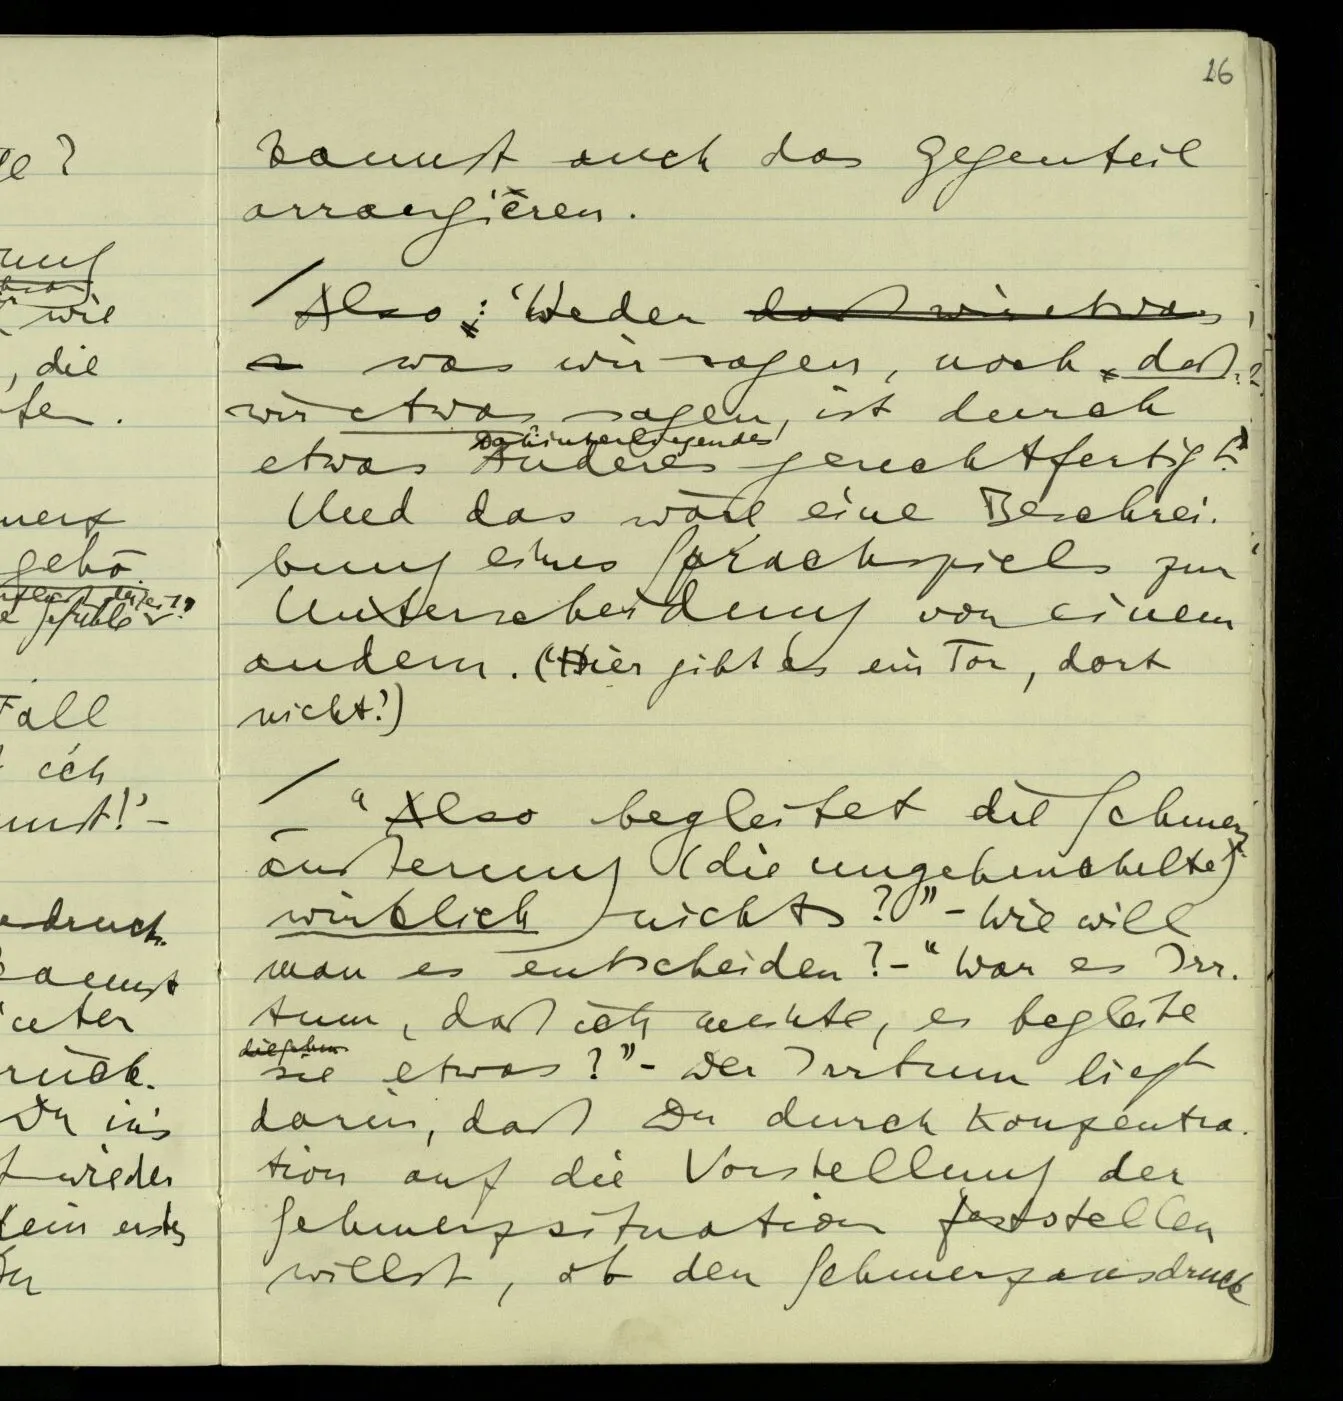 te?
ung
wie
, die
fen.
merz
gehö
Gefühle
Fall
ich
nnst!' –
sdruck.
kannst
unter
rück.
Du in's
wieder
kein erstes
Du
26
kannst auch das Gegenteil
arrangieren.
/ Also: 'Weder daß wir etwas,
was wir sagen, noch daß
wir etwas sagen, ist durch
Dahinterliegendes
etwas Anderes gerechtfertigt?'
Und das wäre eine Beschrei-
bung eines Sprachspiels zur
Unterscheidung von einem
andern. ('Hier gibt es ein Tor, dort
nicht!')
/ "Also begleitet die Schmerz
äußerung (die ungeheuchelte)
wirklich nichts?" – Wie will
man es entscheiden? – "War es Irr-
tum, daß ich meinte, es begleite
die Schm
sie etwas?" – Der Irrtum liegt
darin, daß Du durch Konzentra-
tion auf die Vorstellung der
Schmerzsituation feststellen
willst, ob den Schmerzausdruck